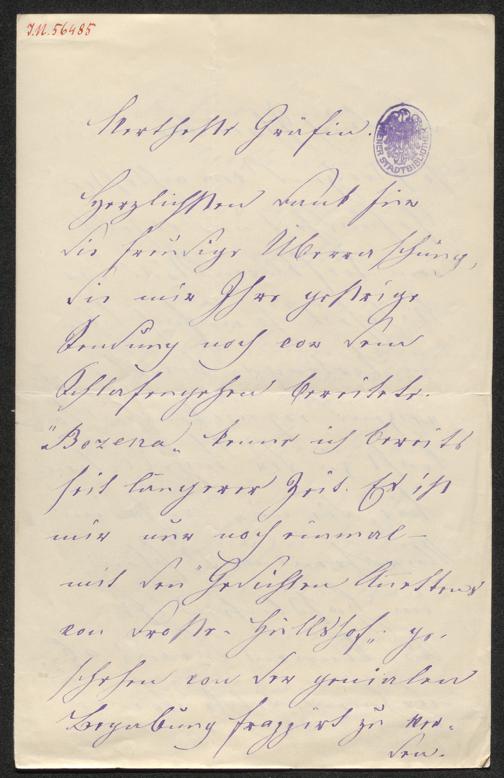 J.N. 56485
WIENER STADTBIBLIOTHEK
Wertheste Gräfin.
Herzlichsten Dank für
die freudige Überraschung,
die mir Ihre gestrige
Sendung noch vor dem
Schlafengehen bereitete.
"Bozena" kenne ich bereits
seit längerer Zeit. Es ist
mir nur noch einmal –
mit den "Gedichten Anettens
von Droste-Hüllshof" ge-
schehen von der genialen
Begabung frappirt zu wer-
den.